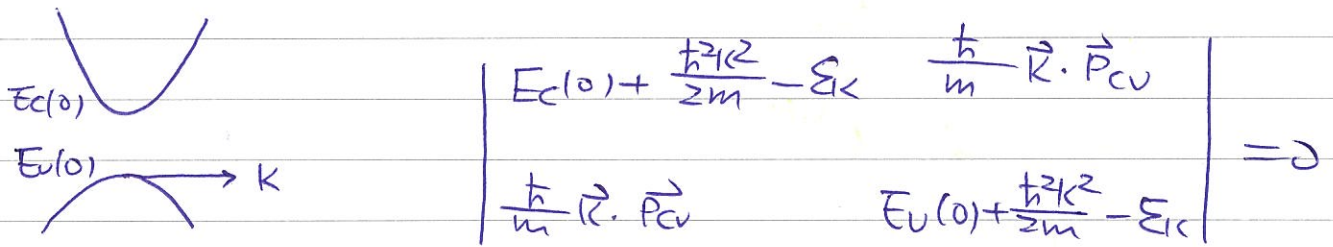 Ec(0)
Ev(0)
K
| Ec(0) + ħ²k²/2m − Ek    ħ/m k⃗ · P⃗cv |
| ħ/m k⃗ · P⃗cv    Ev(0) + ħ²k²/2m − Ek | = 0